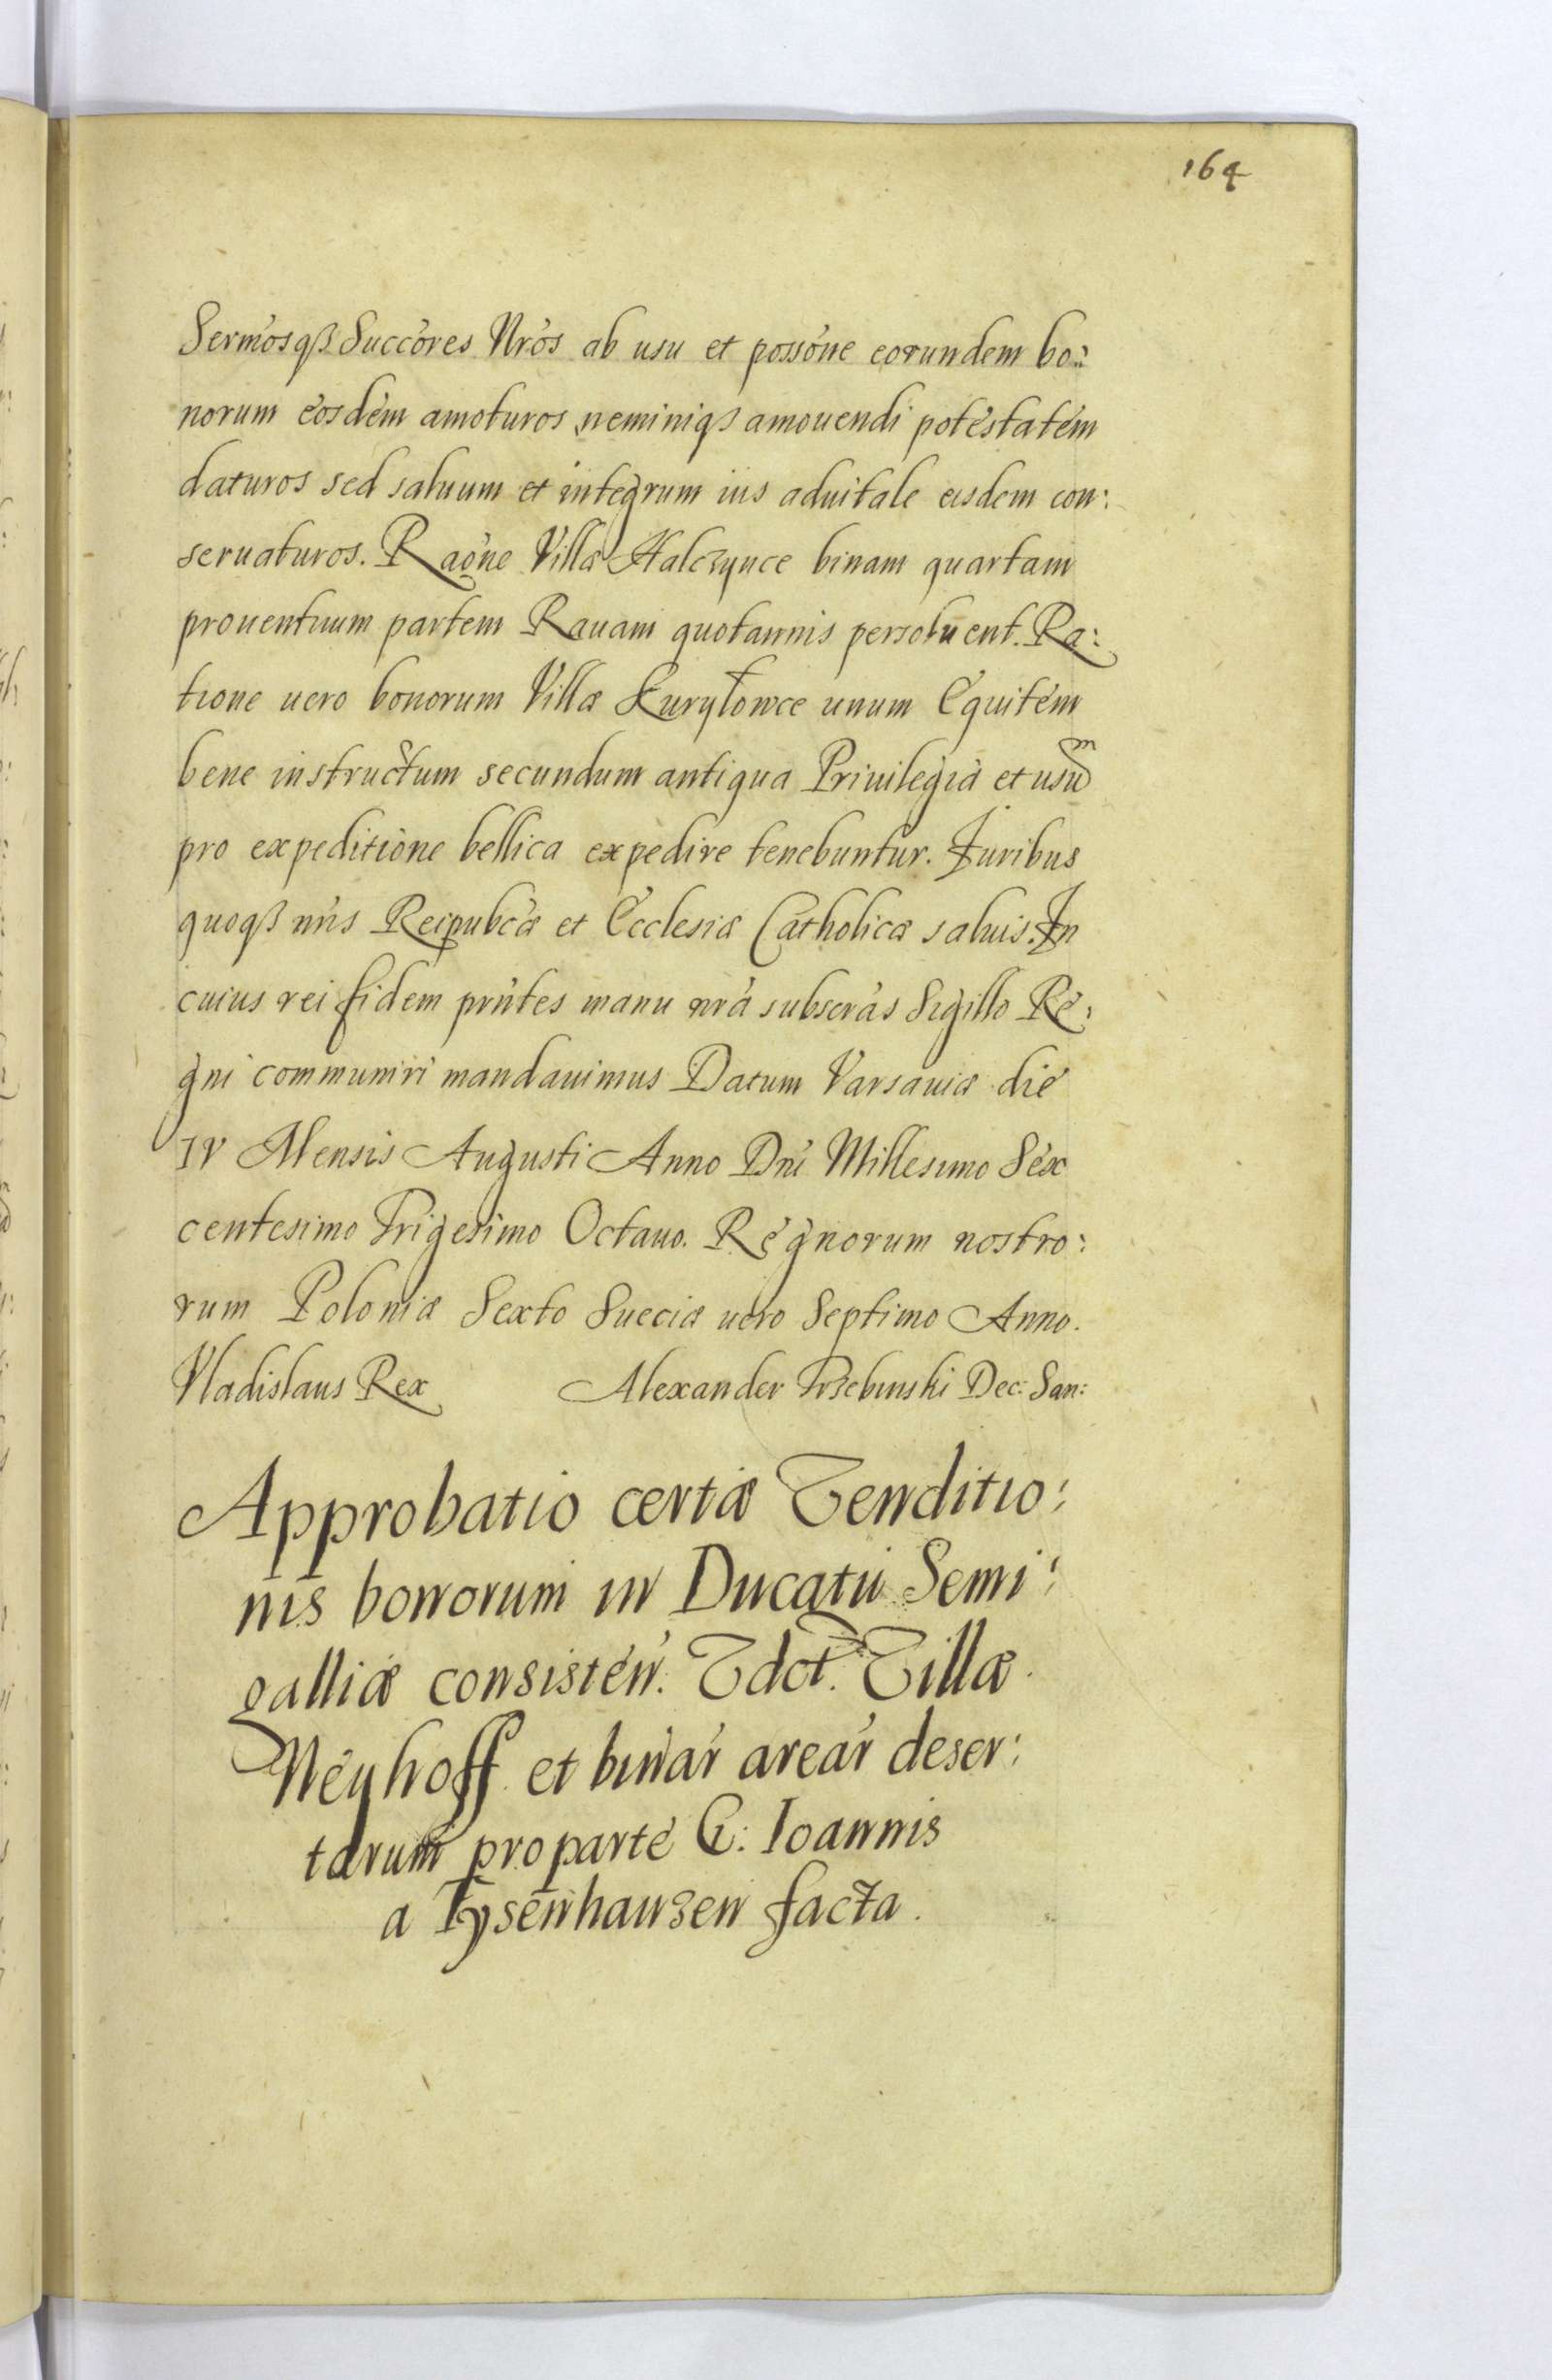 164
Sermósqꝫ Succóres Nrós ab usu et possóne eorundem bo:
norum eosdem amoturos, neminiqꝫ amouendi potestatem
daturos sed saluum et integrum ius aduitale eisdem con:
seruaturos. Raóne Villæ Halczynce binam quartam
prouentuum partem Rauam quotannis persoluent. Ra:
tione uero bonorum Villæ Kuryłowce unum Equitem
bene instructum secundum antiqua Priuilegia et usũm
pro expeditione bellica expedire tenebuntur. Iuribus
quoqꝫ nr̃is Reipubcæ et Ecclesiæ Catholicæ saluis. In
cuius rei fidem prńtes manu nrá subscrás Sigillo Re:
gni communiri mandauimus Datum Varsauiæ die
IV Mensis Augusti Anno Dńi Millesimo Sex
centesimo Trigesimo Octauo. Regnorum nostro:
rum Poloniæ Sexto Sueciæ uero Septimo Anno.
Vladislaus Rex Alexander Trzebinski Dec: San:
Approbatio certæ Venditio:
nis bonorum in Ducatu Semi:
galliæ consisten. Vdct. Villæ
Neyhoff et binar arear deser:
tarum pro parte G: Ioannis
a Tysenhauzen facta.